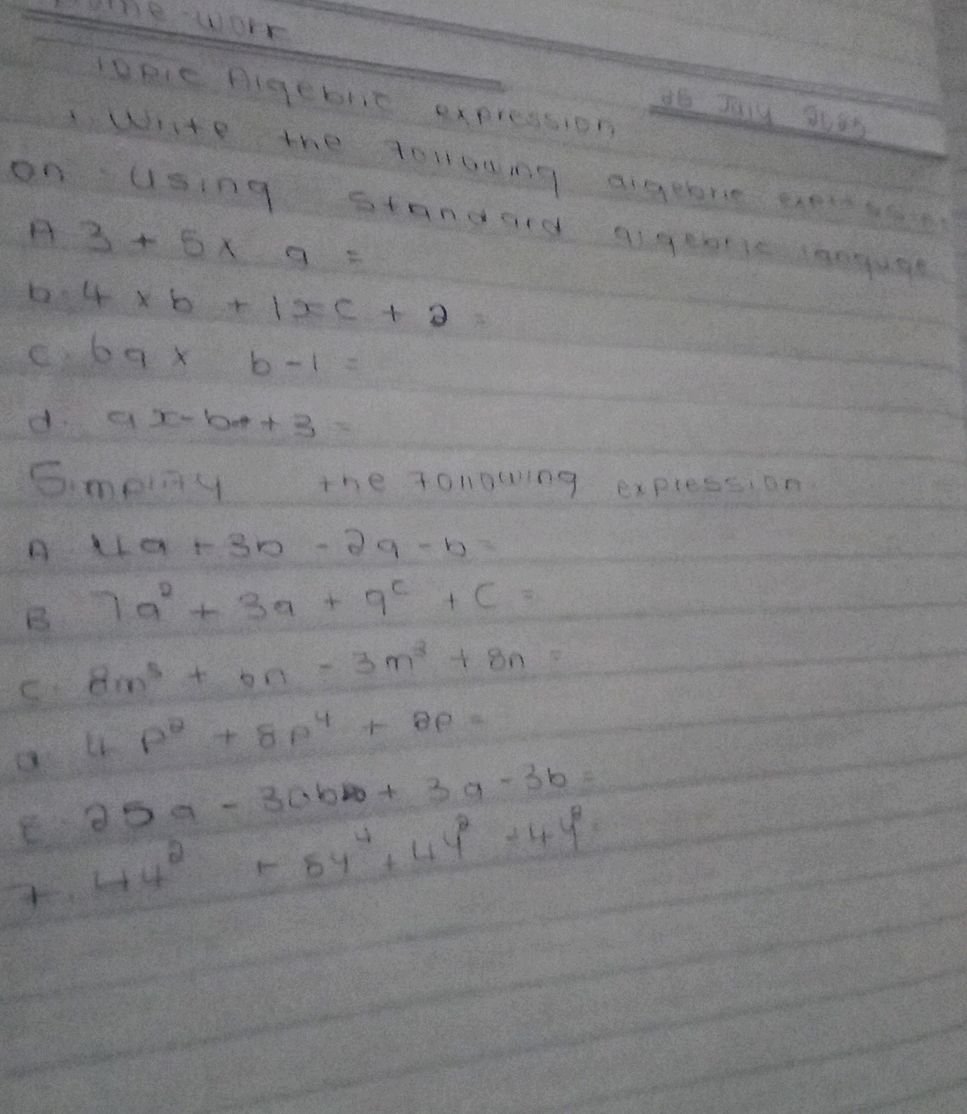 Home work
26 July 2025
TOPIC Algebric expression
1. Write the following algebric expression
on using standard algebric language
A 3 + 5 x a =
b. 4 x b + 1 x c + 2 =
c. 6a x b - 1 =
d. a x - b + 3 =
Simplify the following expression
A 4a + 3b - 2a - b =
B 7a² + 3a + 9c + c =
C. 8m³ + 6n - 3m³ + 8n =
d. 4 p² + 8p⁴ + 2p =
E. 25a - 3ab + 3a - 3b =
7. 4y² + 5y⁴ + 4y² - 4y² =